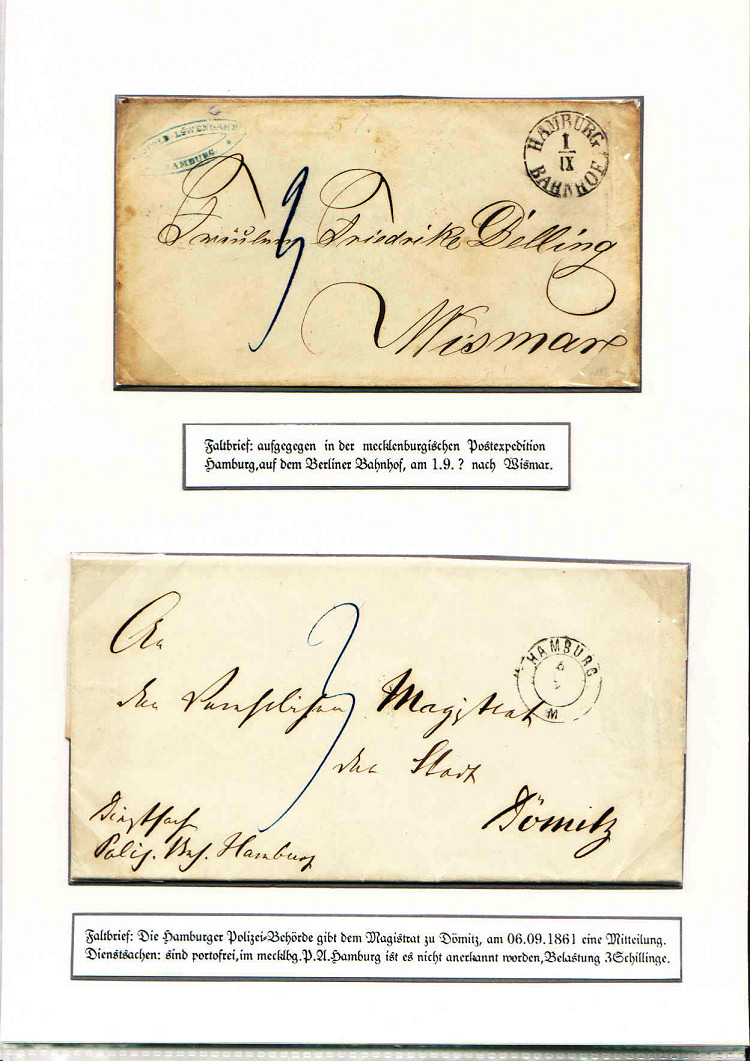 LÖWENGARD
HAMBURG
HAMBURG
1
IX
BAHNHOF
3
Fräulein Friedrike Delling
Wismar
Faltbrief: aufgegegen in der mecklenburgischen Postexpedition
Hamburg,auf dem Berliner Bahnhof, am 1.9. ? nach Wismar.
HAMBURG
6
9
M
An
3
den Magistrat
der Stadt
Dömitz
Dienstsache
Poliz. Beh. Hamburg
Faltbrief: Die Hamburger Polizei-Behörde gibt dem Magistrat zu Dömitz, am 06.09.1861 eine Mitteilung.
Dienstsachen: sind portofrei,im mecklbg.P.A.Hamburg ist es nicht anerkannt worden,Belastung 3Schillinge.